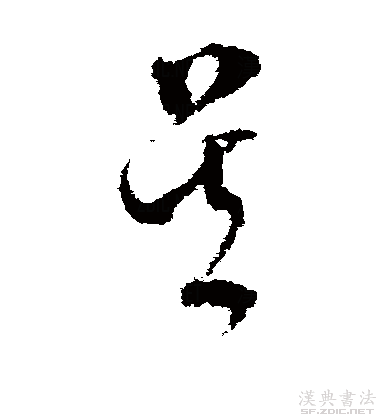 吳
漢典書法
SF.ZDIC.NET